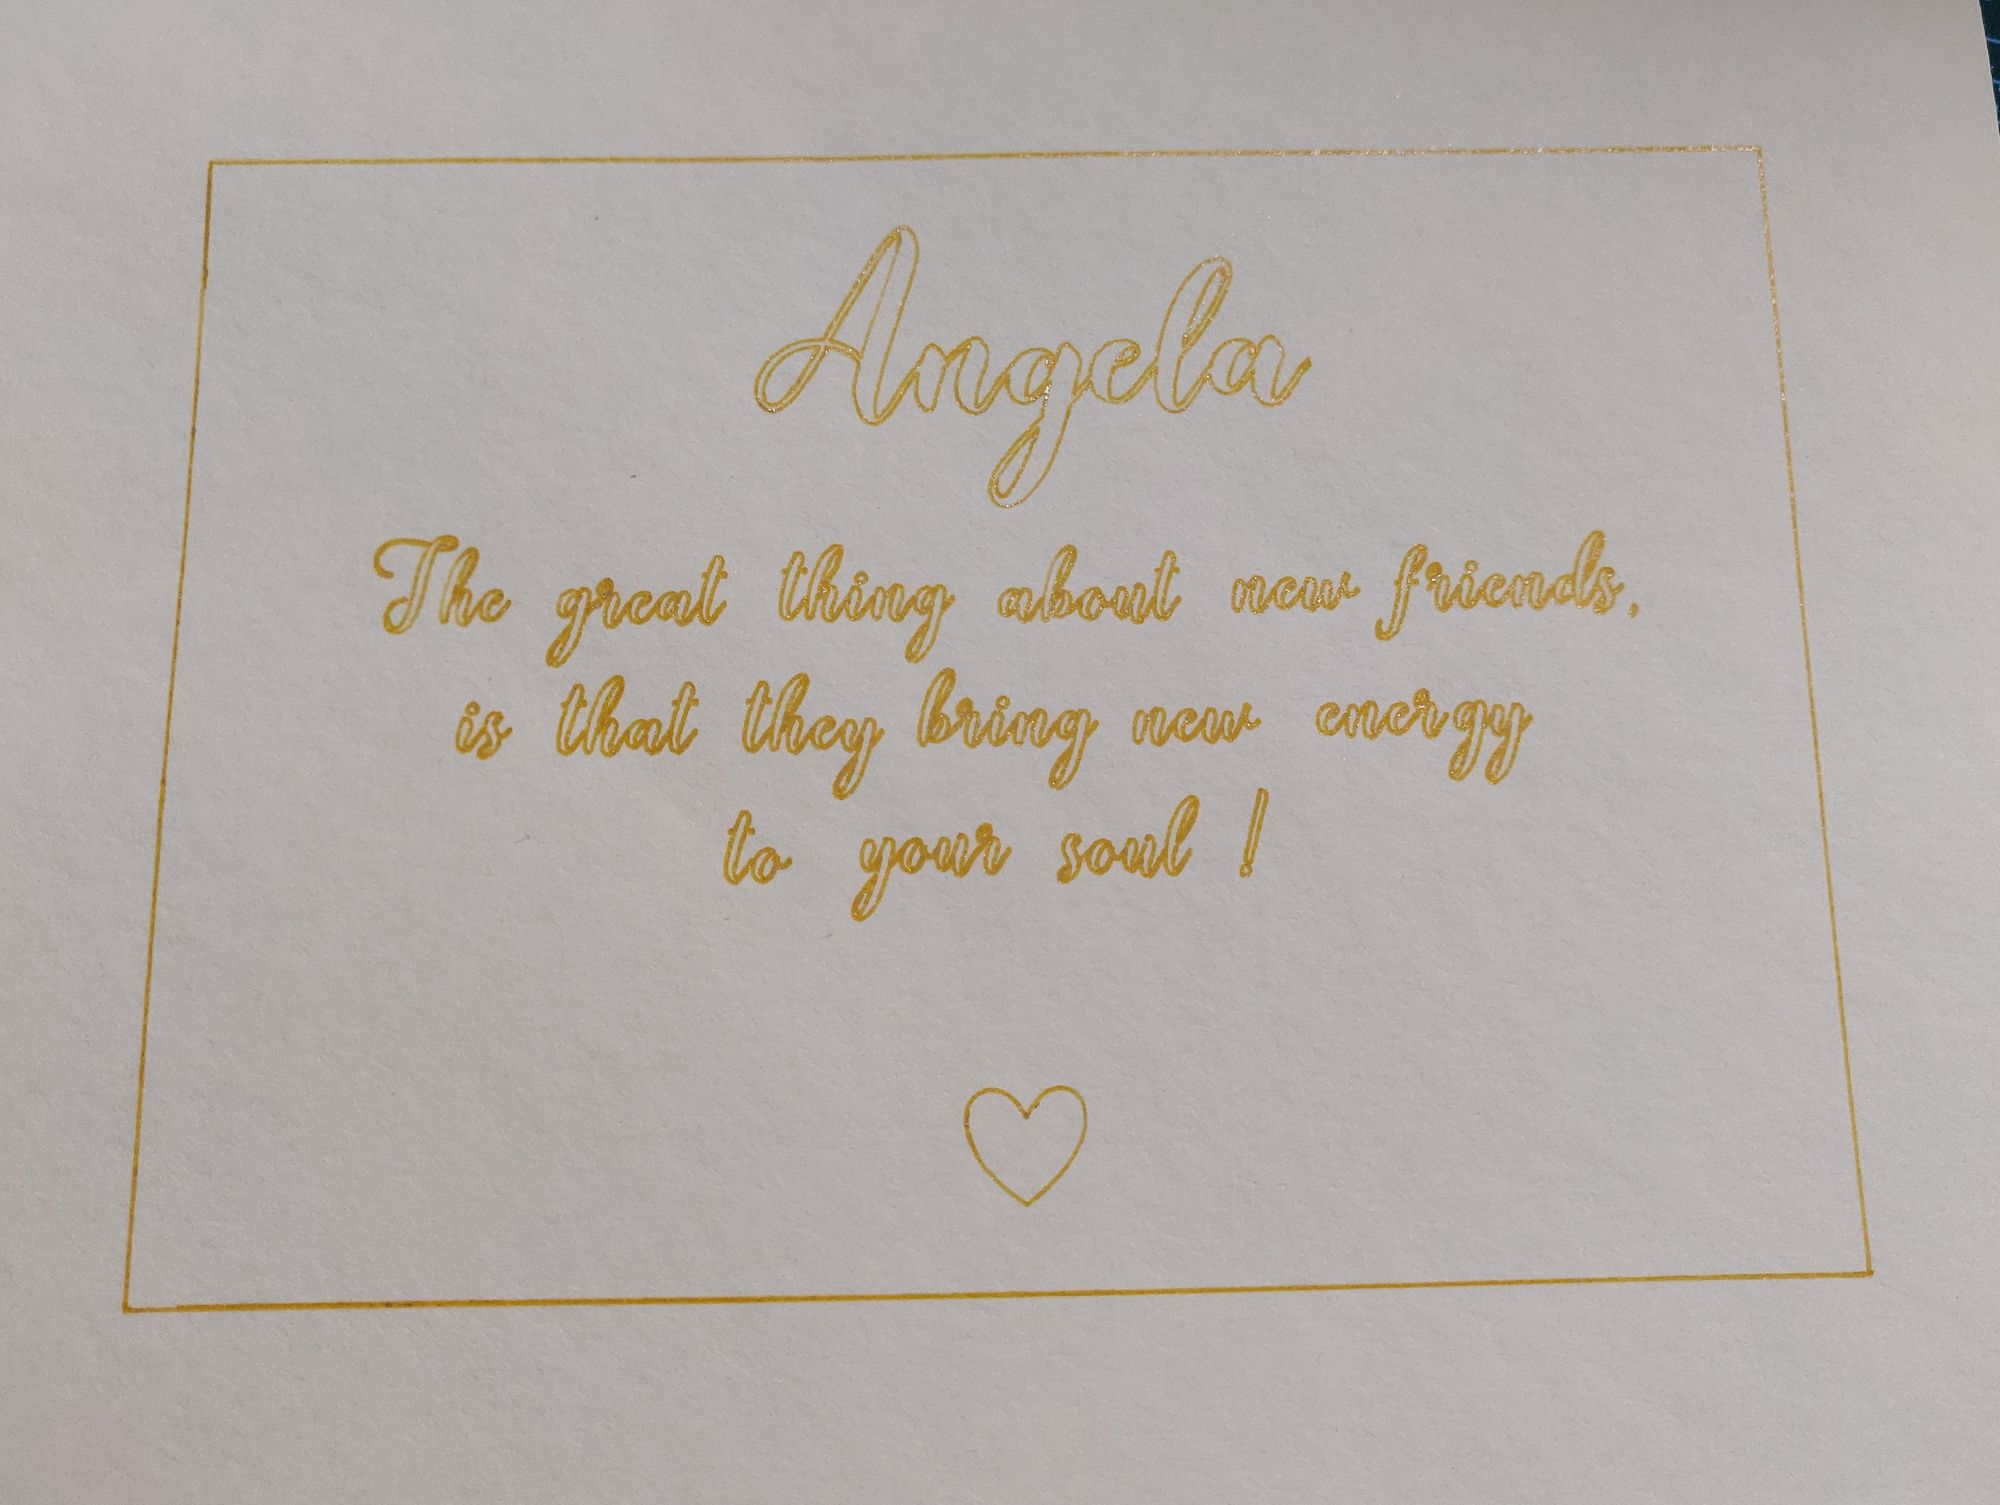 Angela
The great thing about new friends,
is that they bring new energy
to your soul !